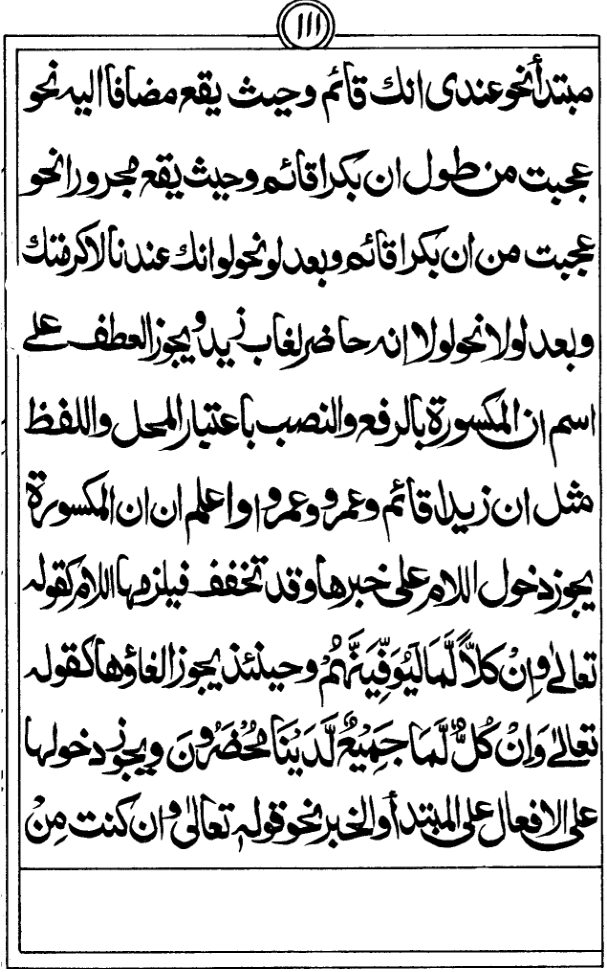 ١١١
مبتدأ نحو عندى انك قائم وحيث يقع مضافا اليه نحو
عجبت من طول ان بكرا قائم وحيث يقع مجرورا نحو
عجبت من ان بكرا قائم وبعد لو نحو لو انك عندنا لاكرمتك
وبعد لولا نحو لولا انه حاضر لغاب زيد ويجوز العطف على
اسم ان المكسورة بالرفع والنصب باعتبار المحل واللفظ
مثل ان زيدا قائم وعمرو وعمروا واعلم ان ان المكسورة
يجوز دخول اللام على خبرها وقد تخفف فيلزمها اللام كقوله
تعالى وَاِنْ كلاًّ لَّمَا لَيُوَفِّيَنَّهُمْ وحينئذ يجوز الغاؤها كقوله
تعالى وَاِنْ كُلٌّ لَّمَا جَمِيْعٌ لَّدَيْنَا مُحْضَرُوْنَ ويجوز دخولها
على الافعال على المبتدأ والخبر نحو قوله تعالى وان كنت مِنْ